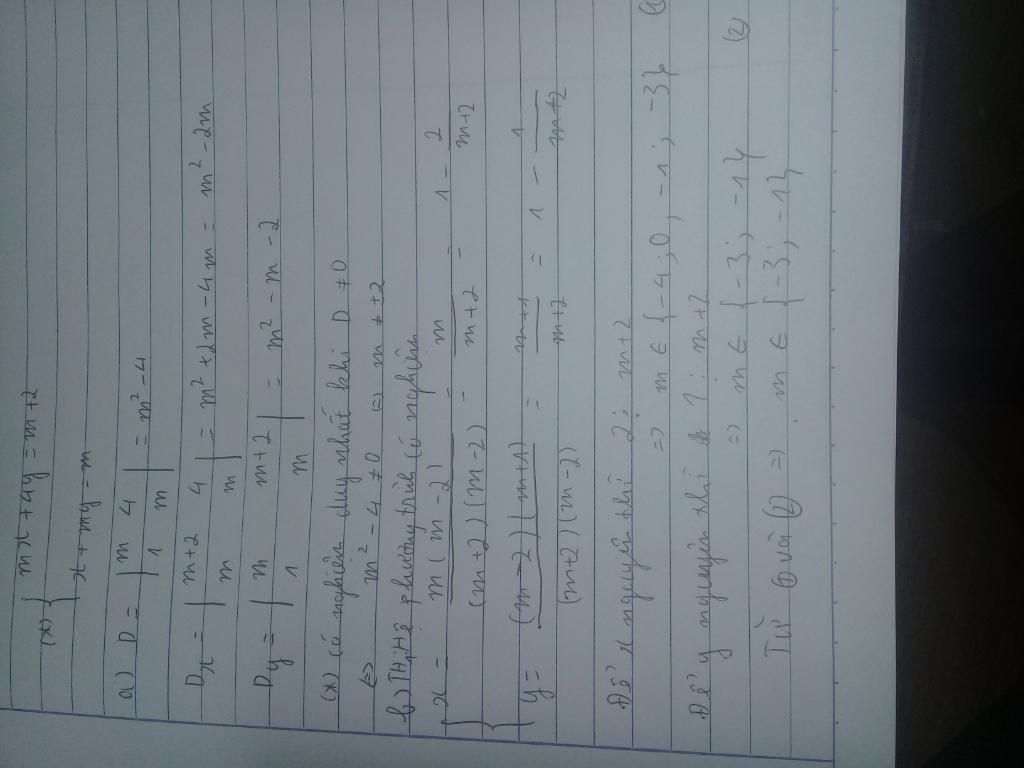 (x) { mx + 4y = m+2
x + my = m
a) D = | m 4 | = m² - 4
| 1 m |
Dx = | m+2 4 | = m² + 2m - 4m = m² - 2m
| m m |
Dy = | m m+2 | = m² - m - 2
| 1 m |
(x) có nghiệm duy nhất khi D ≠ 0
<=> m² - 4 ≠ 0 <=> m ≠ ±2
b) TH1 Hệ phương trình có nghiệm
{ x = m(m-2) / (m+2)(m-2) = m / m+2 = 1 - 2 / m+2
{ y = (m-2)(m+1) / (m+2)(m-2) = m+1 / m+2 = 1 - 1 / m+2
Để x nguyên thì 2 ⋮ m+2
=> m ∈ {-4; 0, -1; -3} (1)
Để y nguyên thì 1 ⋮ m+2
=> m ∈ {-3; -1} (2)
Từ (1) và (2) => m ∈ {-3; -1}